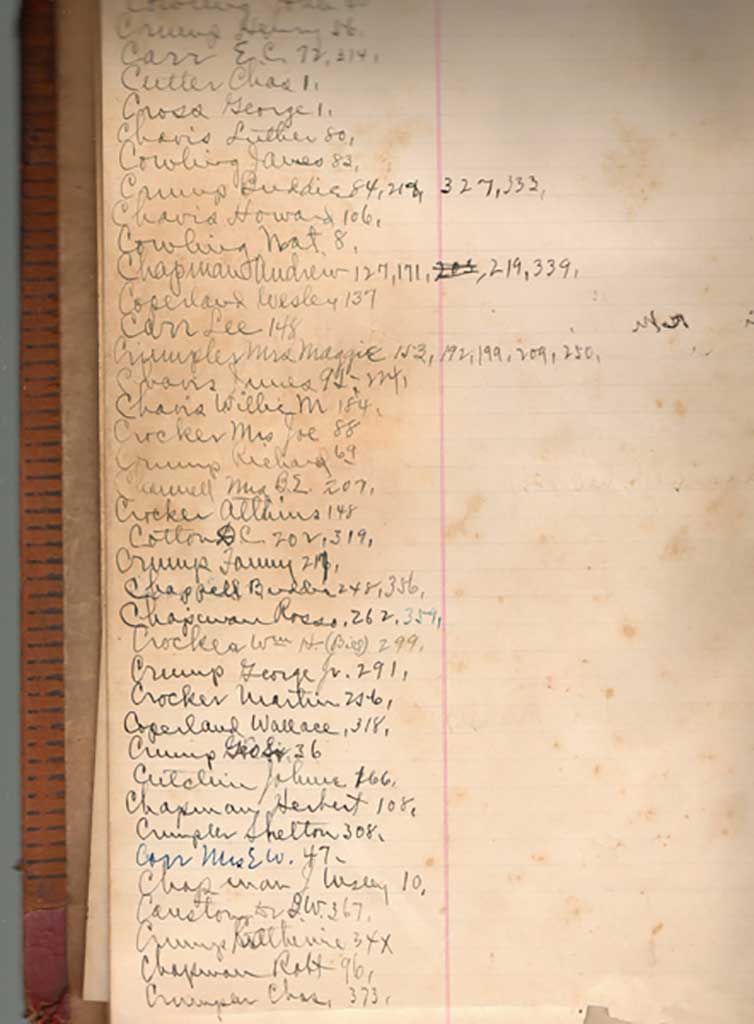 Crump Henry 56.
Carr E.C. 72, 314,
Cutter Chas 1.
Cross George 1.
Chavis Luther 80,
Cowling James 83,
Crump Buddie 84, 218, 327, 333,
Chavis Howard 106,
Cowling Nat. 8,
Chapman Andrew 127, 171, 219, 339,
Coperland Wesley 137
Carr Lee 148
Crumpler Mrs Maggie 153, 192, 199, 209, 250,
James
Chavis Willie M 184,
Crocker Mrs Joe 88
Crump Richard 69
Mrs B.E. 207,
Crocker Atkins 148
Cotton C. 202, 319,
Crump Fanny
Chappell 248, 356,
Chapman Rosso, 262, 359,
Crocker Wm H. 299.
Crump George Jr. 291,
Crocker Martin 256,
Coperland Wallace, 318,
Crump 36
Cutchin Johnie 166,
Chapman Herbert 108,
Crumpler Shelton 308,
Carr Mrs E.W. 47.
Chapman J Wesley 10,
367,
Crump Katherine
Chapman Robt 96,
Crumpler Chas, 373,